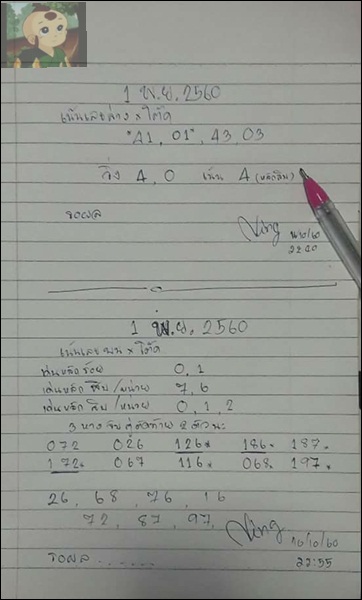 1 พ.ย. 2560
เน้นเลขล่าง x โต๊ด
"41, 01", 43, 03
วิ่ง 4, 0 เน้น 4 (หลักสิบ)
รอผล
Ning 10/10/60
22:50
1 พ.ย. 2560
เน้นเลขบน x โต๊ด
เด่นหลักร้อย 0, 1
เด่นหลักสิบ/หน่วย 7, 6
เด่นหลักสิบ/หน่วย 0, 1, 2
3 หาง จับคู่ 2 ตัวนะ
072 026 126* 186* 187*
172* 067 116* 068* 197*
26, 68, 76, 16
72, 87, 97
Ning 10/10/60
22:55
รอผล......